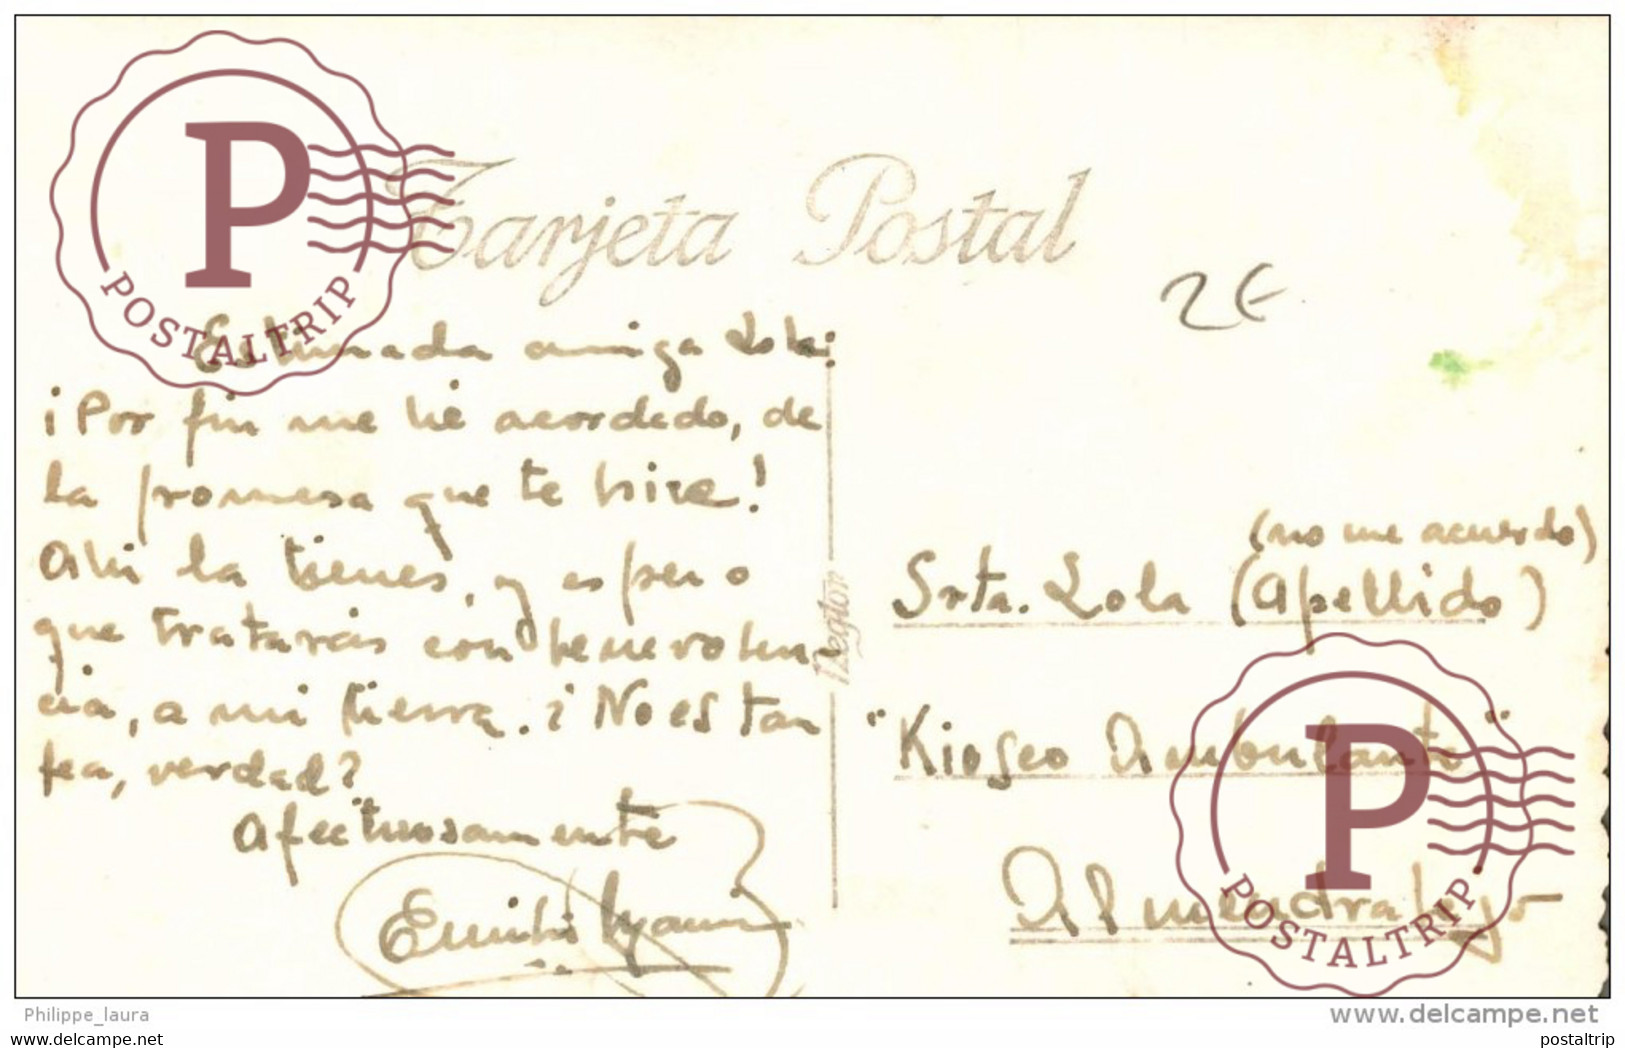 Tarjeta Postal
2€
Estimada amiga Lola:
¡Por fin me hé acordado, de
la promesa que te hice!
Ahi la tienes, y espero
que tratarás con benevolen-
cia, a mi tierra. ¿No es tan
fea, verdad?
Afectuosamente
Emilio
(no me acuerdo)
Srta. Lola (Apellido)
"Kiosco Ambulante"
Almendralejo
P
POSTALTRIP
P
POSTALTRIP
Philippe_laura
www.delcampe.net
www.delcampe.net
postaltrip